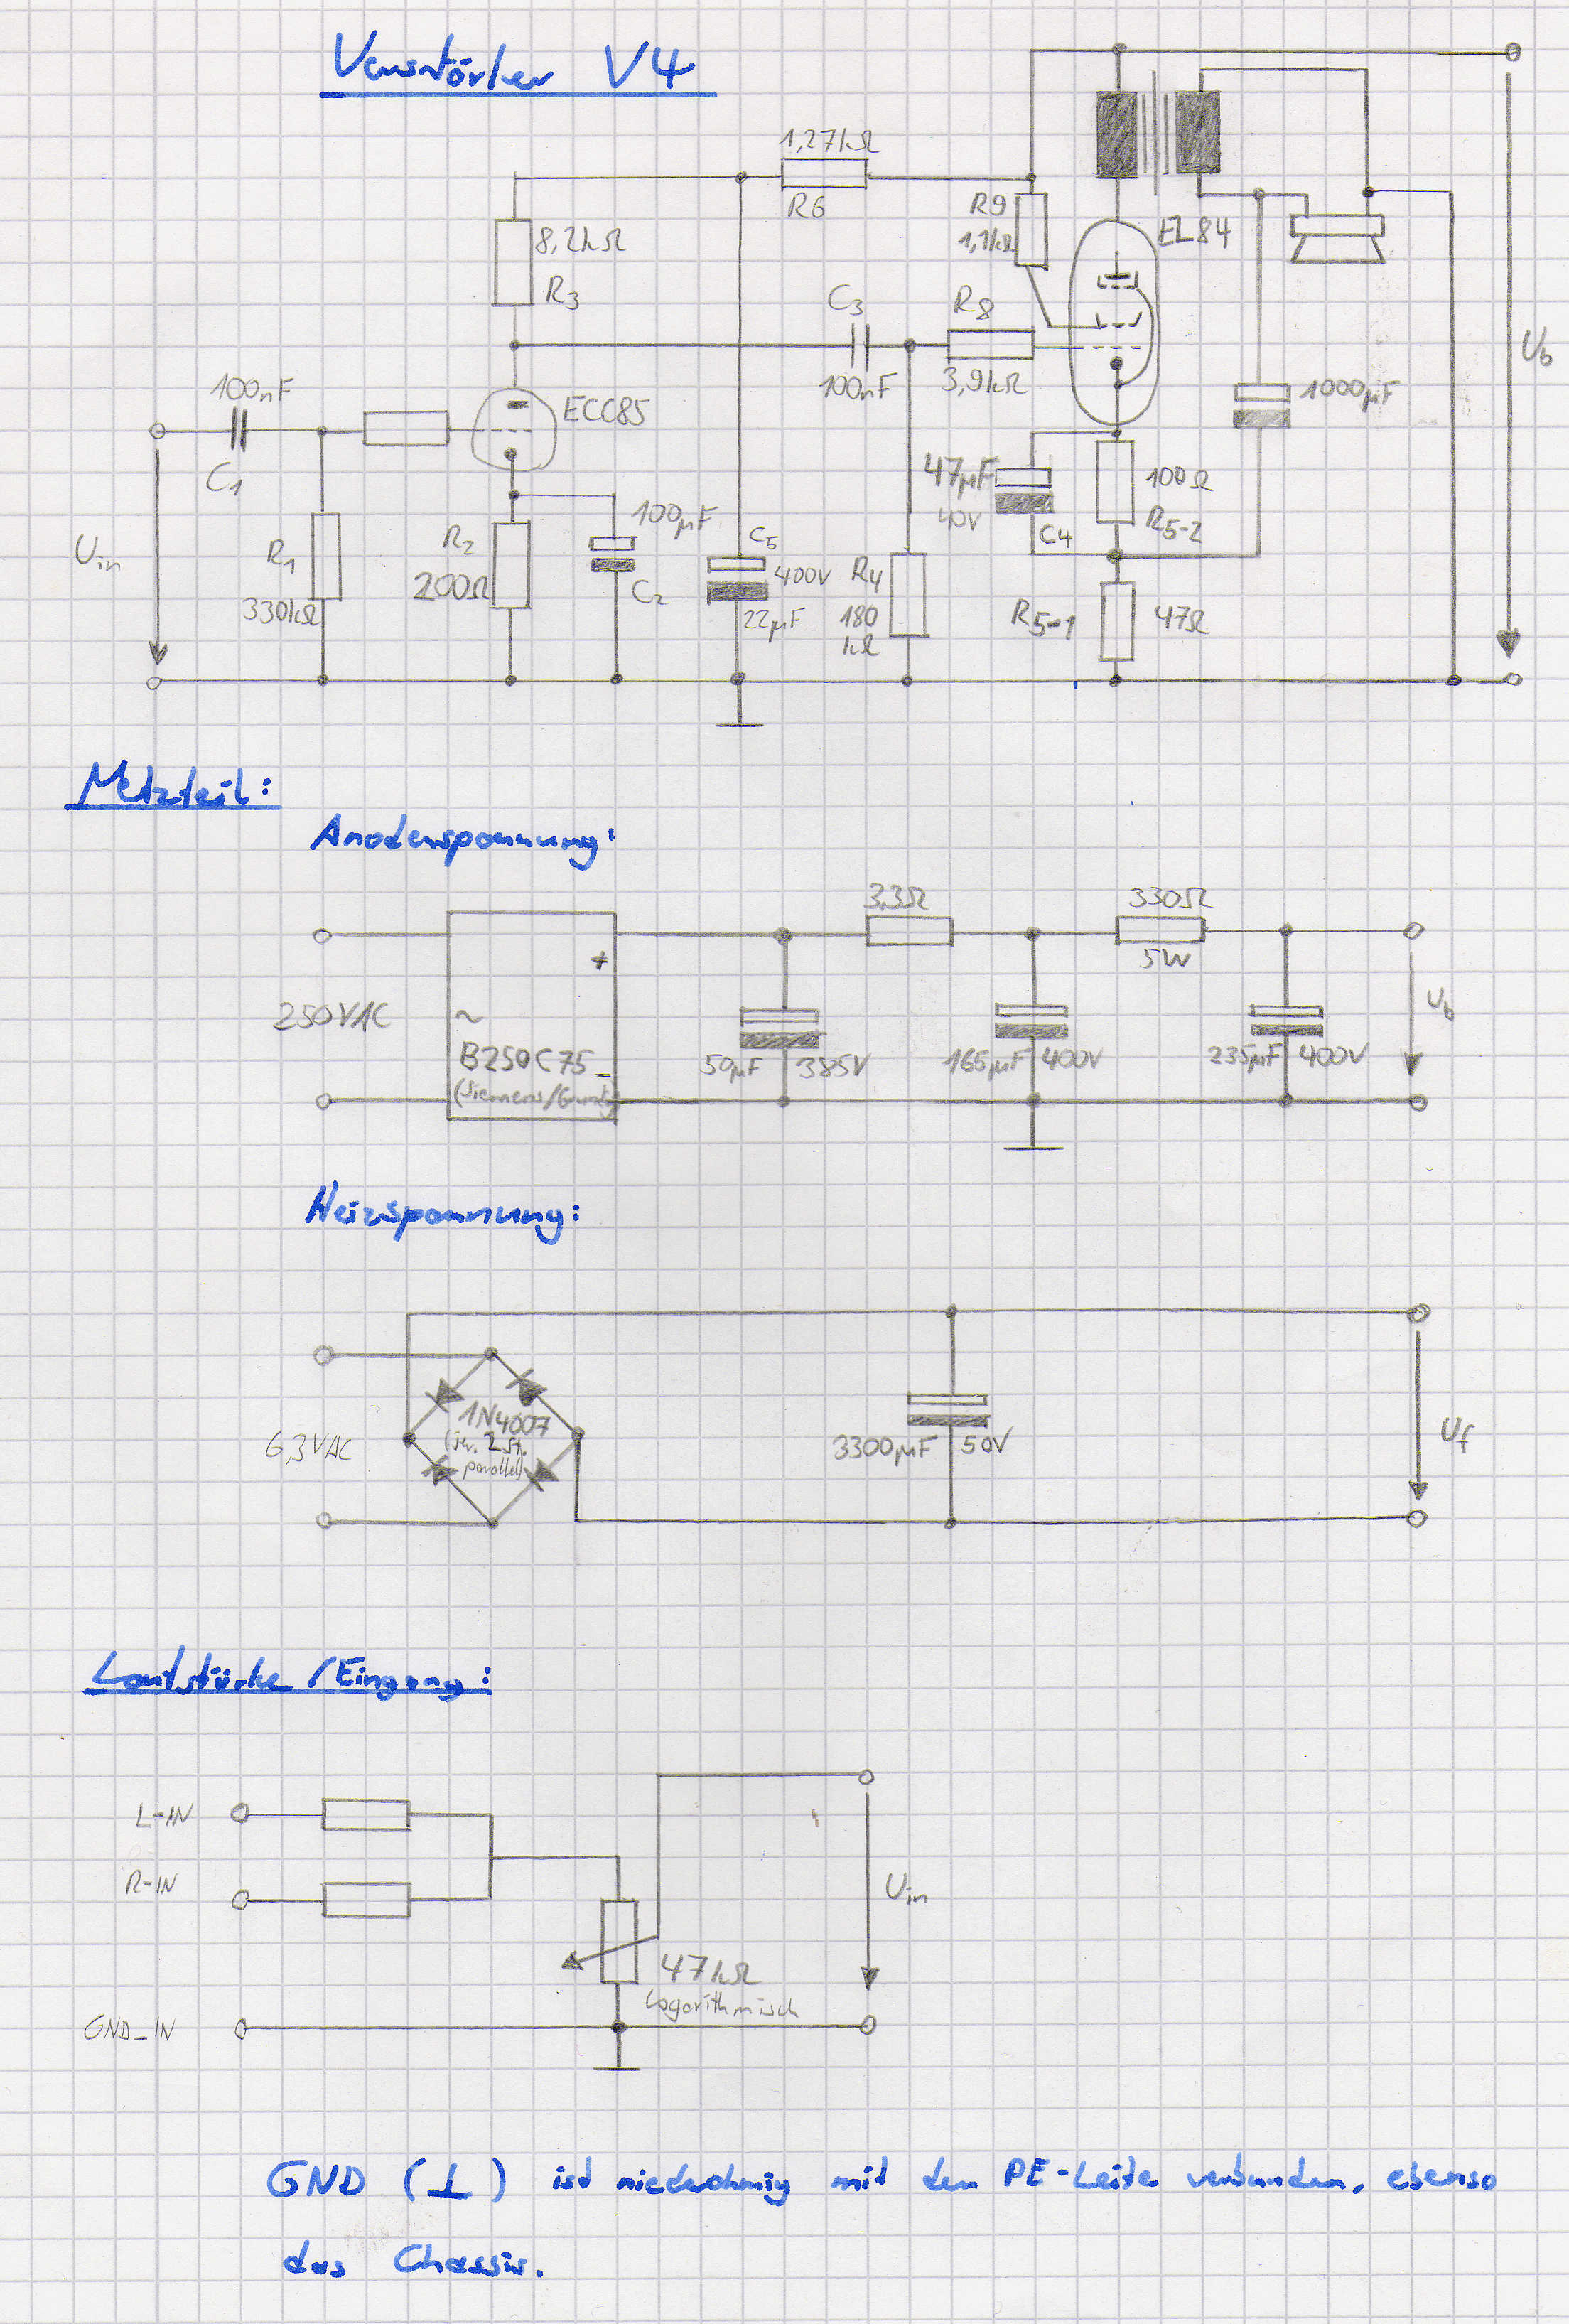 Verstärker V4
1,27kΩ
R6
R9
1,1kΩ
EL84
8,2kΩ
R3
C3
R8
100nF
3,9kΩ
Ub
100nF
ECC85
C1
1000µF
47µF
40V
C4
100Ω
R5-2
Uin
R1
330kΩ
R2
200Ω
100µF
C2
C5
400V
22µF
R4
180
kΩ
R5-1
47Ω
Netzteil:
Anodenspannung:
3,3Ω
330Ω
5W
+
250VAC
~
B250C75
-
(Siemens/Grundig)
50µF 385V
165µF 400V
235µF 400V
Ub
Heizspannung:
1N4007
(jw. 2 St.
parallel)
6,3VAC
3300µF 50V
Uf
Lautstärke/Eingang:
L-IN
R-IN
Uin
47kΩ
logarithmisch
GND_IN
GND (⊥) ist niederohmig mit dem PE-Leite verbunden, ebenso
das Chassis.